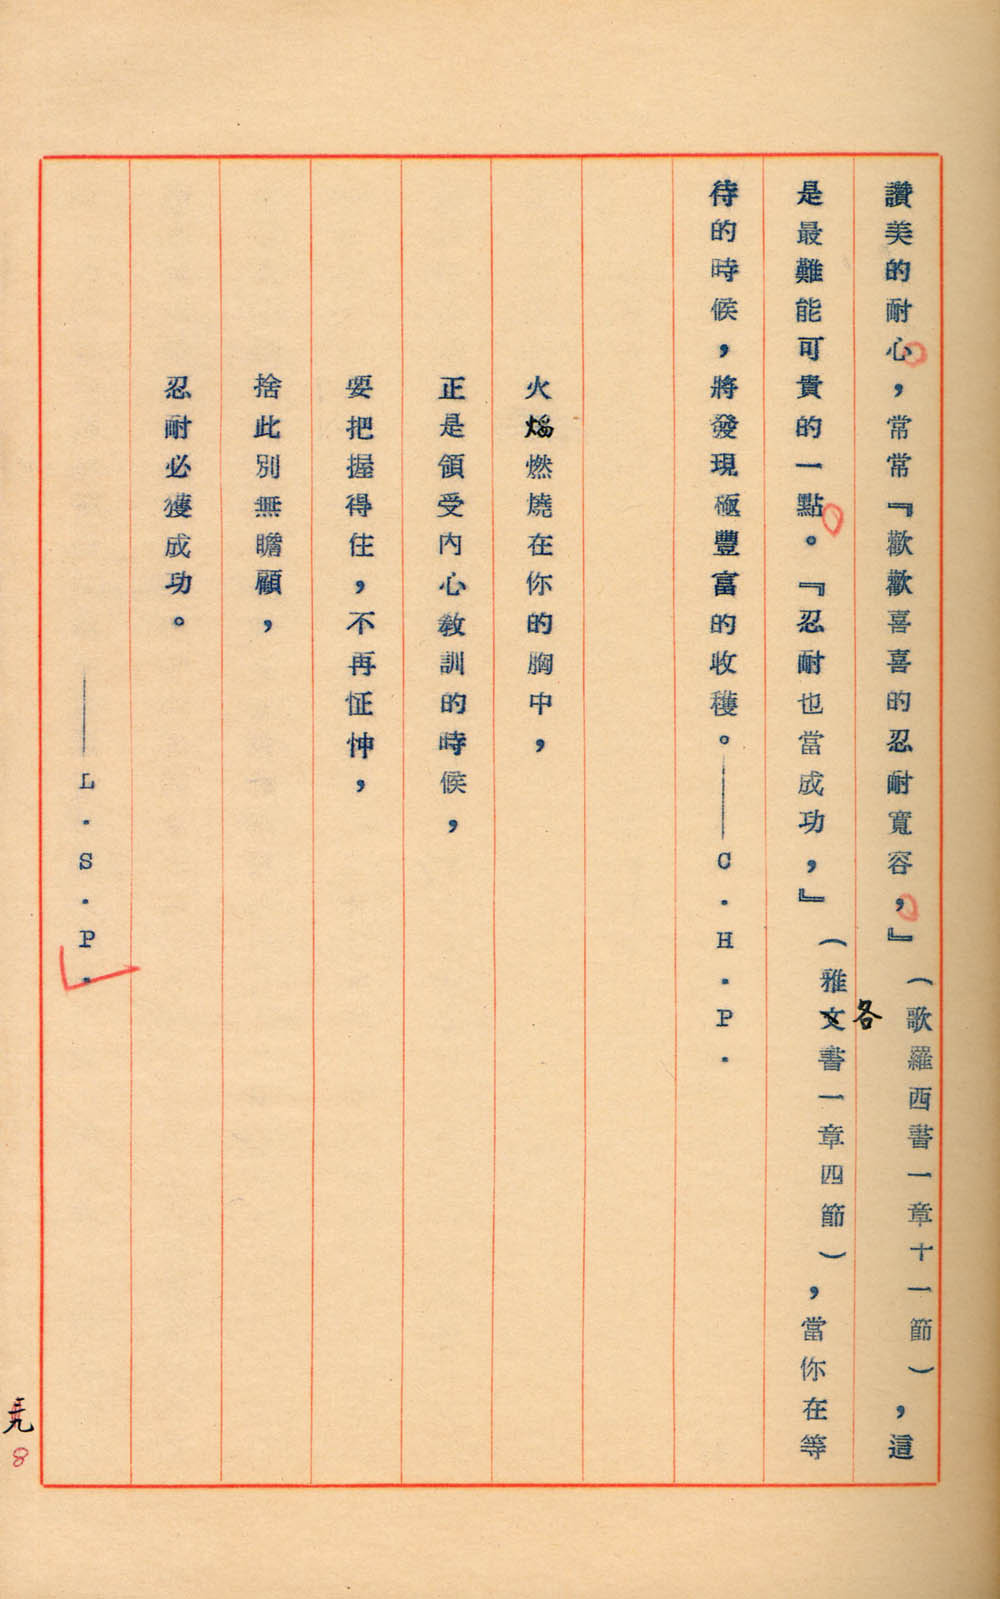 讚美的耐心，常常『歡歡喜喜的忍耐寬容，』（歌羅西書一章十一節），這
是最難能可貴的一點。『忍耐也當成功，』（雅各書一章四節），當你在等
待的時候，將發現極豐富的收穫。——C．H．P．
火燄燃燒在你的胸中，
正是領受內心教訓的時候，
要把握得住，不再怔忡，
捨此別無瞻顧，
忍耐必獲成功。
——L．S．P．
8